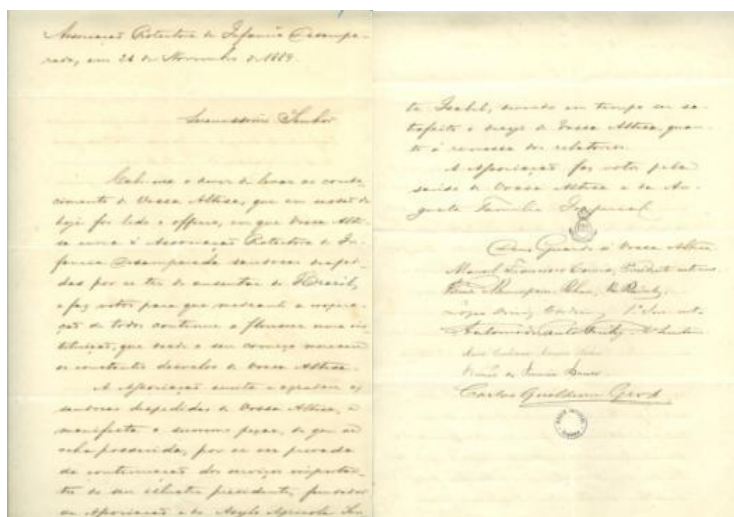 Associação Protectora da Infancia Desampa-
rada, em 21 de Novembro de 1889.
Serenissimo Senhor
Cabe-me o dever de levar ao conhe-
cimento de Vossa Alteza, que em sessão de
hoje foi lido o officio, em que Vossa Alte-
za envia á Associação Protectora da In-
fancia Desamparada saudosas despedi-
das por se ter de ausentar do Brazil,
e faz votos para que mediante a coopera-
ção de todos continue a florescer essa ins-
tituição, que desde o seu começo mereceu
os constantes desvelos de Vossa Alteza.
A Associação acceita e agradece as
saudosas despedidas de Vossa Alteza, e
manifesta o summo pezar, de que se
acha possuida, por se ver privada
da continuação dos serviços importan-
tes do seu illustre presidente, fundador
da Associação e do Asylo Agricola San-
ta Isabel, devendo em tempo ser sa-
tisfeito o desejo de Vossa Alteza, quan-
to á remessa dos relatorios.
A Associação faz votos pela
saude de Vossa Alteza e da Au-
gusta Familia Imperial
Deus Guarde a Vossa Alteza
Manoel Francisco Correia, Presidente
Carlos